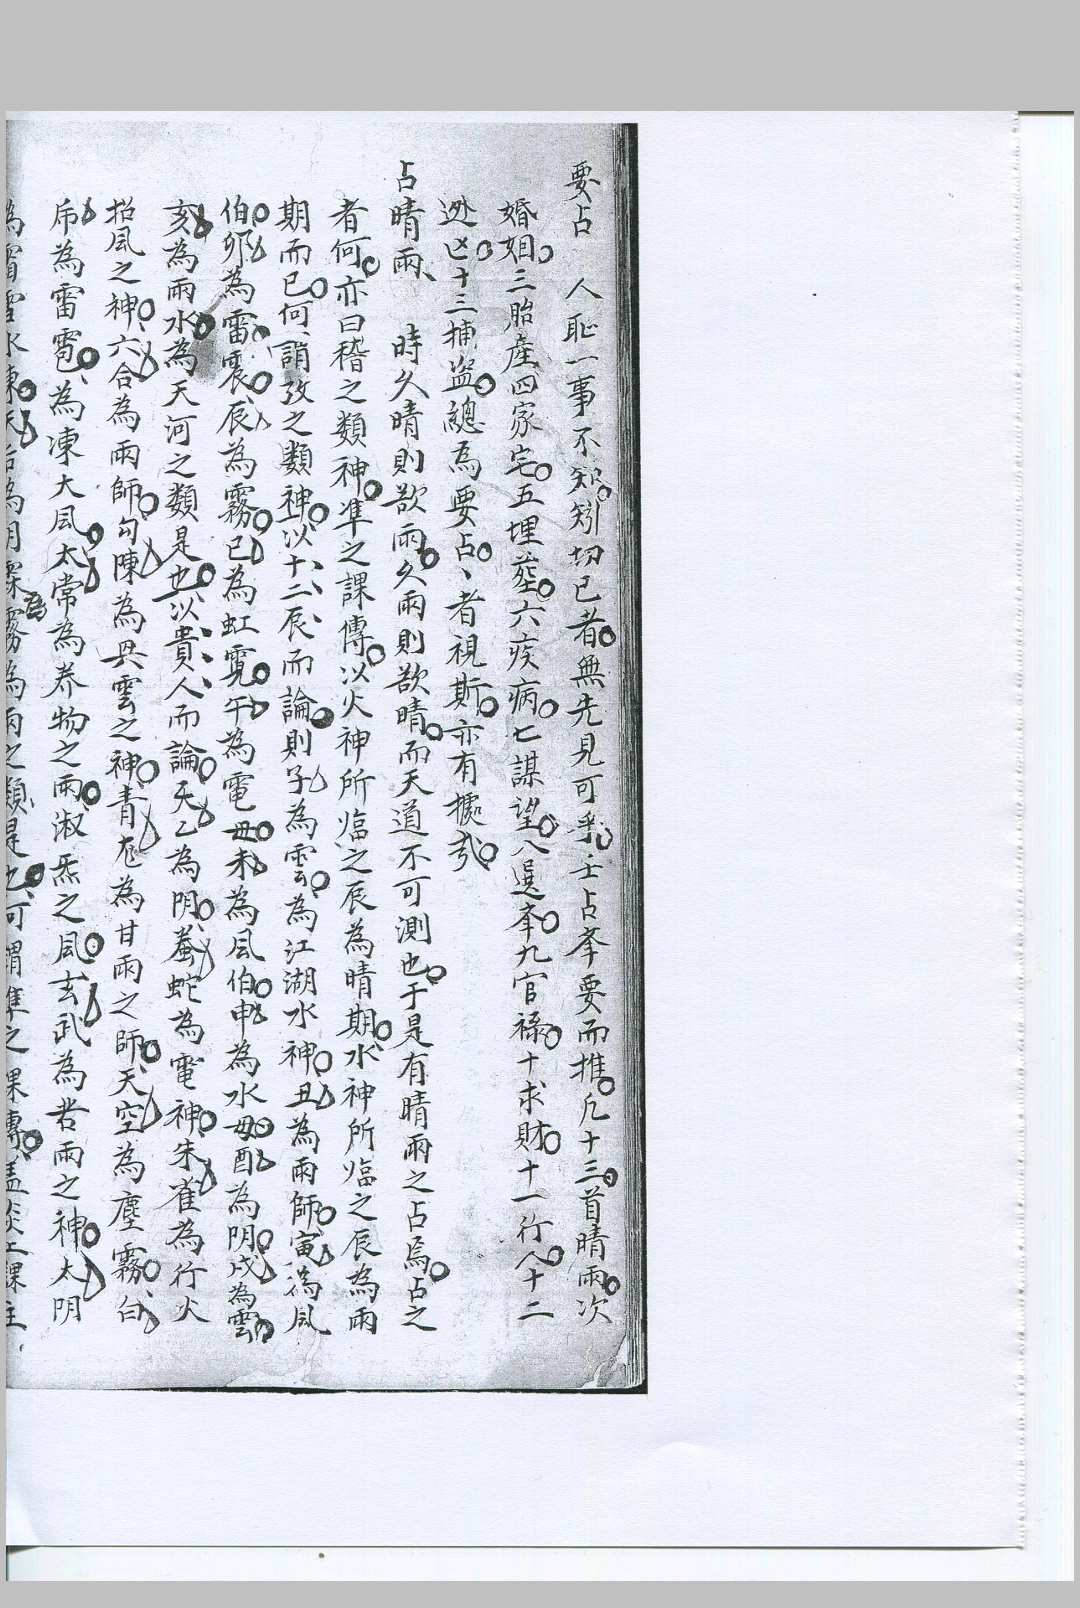 要占 人恥一事不知矧切已者無先見可乎壬占峯要而推凡十三首晴雨次
婚姻三胎產四家宅五埋葬六疾病七謀望八選峯九官祿十求財十一行人十二
迯亡十三捕盜總為要占、者視斯亦有據哉
占晴雨 時久晴則欲雨久雨則欲晴而天道不可測也于是有晴雨之占焉占之
者何亦曰稽之類神準之課傳以火神所臨之辰為晴期水神所臨之辰為雨
期而已何謂攷之類神以十二辰而論則子為雲為江湖水神丑為雨師寅為風
伯卯為雷震辰為霧巳為虹霓午為電毋未為風伯申為水毋酉為陰戌為雲
亥為雨水為天河之類是也以貴人而論天乙為陰螣蛇為電神朱雀為行火
招風之神六合為雨師勾陳為興雲之神青龙為甘雨之師天空為塵霧白
帍為雷雹為凍大風太常為养物之雨淑炁之風玄武為苦雨之神太陰
為霜雪水凍天后為陰深霧為雨之類是也何謂準之課傳